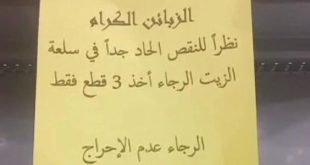 الزبائن الكرام
نظراً للنقص الحاد جداً في سلعة
الزيت الرجاء أخذ 3 قطع فقط
الرجاء عدم الإحراج